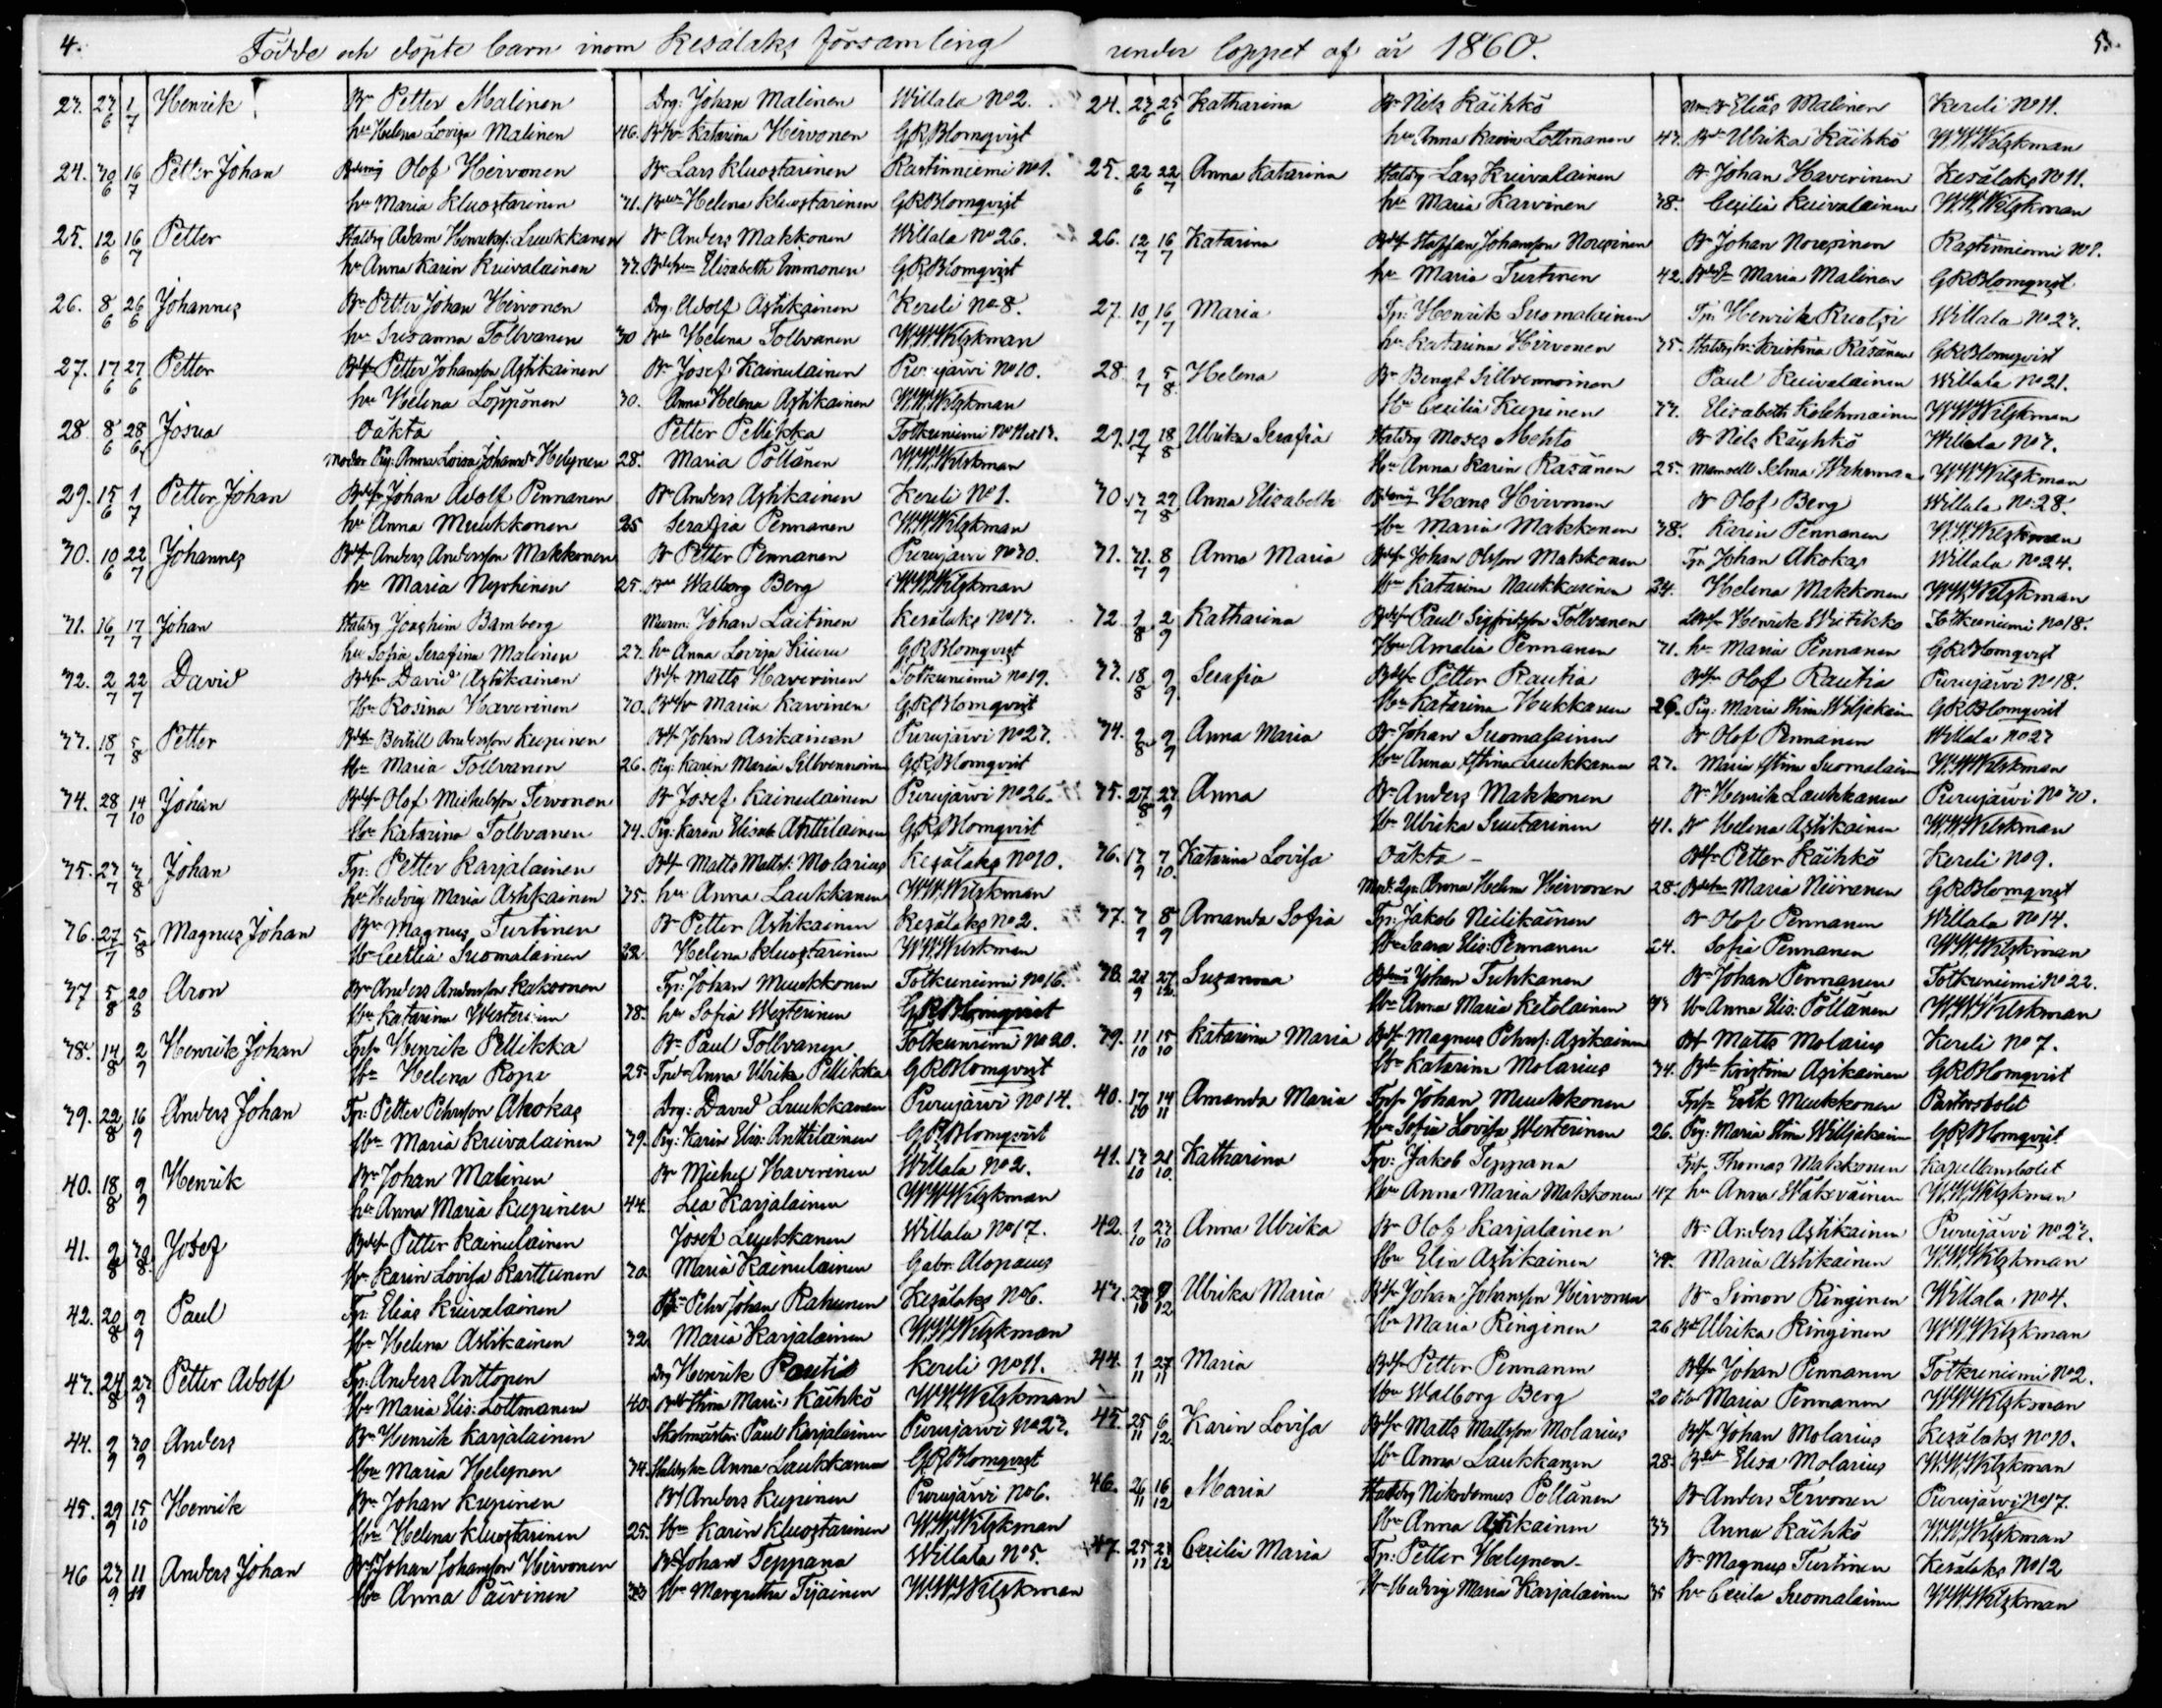 4.
Födde och döpte barn inom Kesälaks församling
23. 27/6 1/7 Henrik Bn Petter Malinen Drg: Johan Malinen Willala No 2.
hu Helena Lovisa Malinen 46. Katarina Hirvonen G.R.Blomqvist
24. 30/6 16/7 Petter Johan Olof Hirvonen Bn Lars Kluostarinen Rastinniemi No 1.
hu Maria Kluostarinen 31. Helena Kluostarinen G.R.Blomqvist
25. 12/6 16/7 Petter Adam Henriks: Luukkanen Bn Anders Makkonen Willala No 26.
hu Anna Karin Kuivalainen 33. Elisabeth Immonen G.R.Blomqvist
26. 8/6 26/6 Johannes Bn Petter Johan Hirvonen Drg. Adolf Asikainen Kereli No 8.
hu Susanna Tollvanen 30 Helena Tollvanen W.W.Wilskman
27. 17/6 27/6 Petter Petter Johansson Asikainen Bn Josef Kainulainen Purujärvi No 10.
hu Helena Löppönen 30. Anna Helena Asikainen W.W.Wilskman
28 8/6 28/6 Josua Oäkta Petter Pellikka Totkuniemi
Moder Pig: Anna Lovisa Johansdr Helynen 28. Maria Pöllänen W.W.Wilskman
29. 15/6 1/7 Petter Johan Johan Adolf Pennanen Bn Anders Asikainen Kereli No 1.
hu Anna Muukkonen 25 Serafia Pennanen W.W.Wilskman
30. 10/6 22/7 Johannes Anders Andersson Makkonen Bn Petter Pennanen Purujärvi No 30.
hu Maria Neyvhinen 25. Walborg Berg W.W.Wilskman
31. 16/7 17/7 Johan Joachim Bamberg Murm: Johan Laitinen Kesälaks No 13.
hu Sofia Serafina Malinen 27. hu Anna Lovisa Kiuru G.R.Blomqvist
32. 2/7 22/7 David David Asikainen Matts Haverinen Totkuniemi No 19.
Hu Rosina Haverinen 30. Maria Karvinen G.R.Blomqvist
33. 18/7 5/8 Petter Bertill Andersson Kupinen Johan Asikainen Purujärvi No 27.
Hu Maria Tollvanen 26. Pig: Karin Maria Sillvennoinen G.R.Blomqvist
34. 28/7 14/10 Johan Olof Michelsson Tervonen Bn Josef Kainulainen Purujärvi No 26.
Hu Katarina Tollvanen 34. Pig: Karin Elisab Anttilainen G.R.Blomqvist
35. 27/7 3/8 Johan Tp: Petter Karjalainen Matts Mattss: Molarius Kesälaks No 10.
hu Hedvig Maria Asikainen 35. hu Anna Laukkanen W.W.Wilskman
36 27/7 5/8 Magnus Johan Bn Magnus Turtinen Bn Petter Asikainen Kesälaks No 2.
Hu Cecilia Suomalainen 32. Helena Kluostarinen W.W.Wilskman
37 5/8 20/8 Aron Bn Anders Andersson Kakoonen Tp: Johan Muukkonen Totkuniemi No 16.
Hu Katarina Westerinen 38. hu Sofia Westerinen G.R.Blomqvist
38. 14/8 2/9 Henrik Johan Henrik Pellikka Bn Paul Tollvanen Totkuniemi No 20.
Hu Helena Ropa 25. Anna Ulrika Pellikka G.R.Blomqvist
39. 22/8 16/9 Anders Johan Tp: Petter Pehrsson Akokas Drg: David Luukkanen Purujärvi No 14.
Hu Maria Kuivalainen 39. Pig: Karin Elis: Anttilainen G.R.Blomqvist
40. 18/8 9/9 Henrik Bn Johan Malinen Bn Michel Haverinen Willala No 2.
hu Anna Maria Kupinen 44. Lea Karjalainen W.W.Wilskman
41. Josef Petter Kainulainen Josef Luukkanen Willala No 17.
Hu Karin Lovisa Karttunen 30 Maria Kainulainen Gabr. Alopaeus
42. 20/8 9/9 Paul Tp: Elias Kuivalainen Petr Johan Rahunen Kesälaks No 6.
Hu Helena Asikainen 32. Maria Karjalainen W.W.Wilskman
43. 24/8 23/9 Petter Adolf Tp: Anders Anttonen Drg Henrik Rautio Kereli No 11.
Hu Maria Elis: Lottmanen 40. Stina Maria Käihkö W.W.Wilskman
44. 9/9 30/9 Anders Bn Henrik Karjalainen Skolmästar: Paul Karjalainen Purujärvi No 23.
Hu Maria Helynen 34. Anna Laukkanen G.R.Blomqvist
45. 29/9 15/10 Henrik Bn Johan Kupinen Anders Kupinen Purujärvi No 6.
Hu Helena Kluostarinen 25. Hu Karin Kluostarinen W.W.Wilskman
46 27/9 11/11 Anders Johan Johan Johansson Hirvonen Bn Johan Teppana Willala No 5.
Hu Anna Päivinen 33 Hu Margretha Tijainen W.W.Wilskman
under loppet af år 1860.
5.
24. 23/6 25/6 Katharina Bn Nils Käihkö Elias Malinen Kereli No 11.
hu Anna Karin Lottmanen 43. Ulrika Käihkö W.W.Wilskman
25. 22/6 22/7 Anna Katarina Lars Kuivalainen Bn Johan Haverinen Kesälaks No 11.
hu Maria Karvinen 38. Cecilia Kuivalainen W.W.Wilskman
26. 12/7 16/7 Katarina Staffan Johansson Nousinen Bn Johan Nousinen Rastinniemi No 1.
hu Maria Turtinen 42. Maria Malinen G.R.Blomqvist
27. 10/7 16/7 Maria Tp: Henrik Suomalainen Tp: Henrik Ruotsi Willala No 23.
hu Katarina Hirvonen 35. Kristina Räsänen G.R.Blomqvist
28 1/7 5/8 Helena Bn Bengt Sillvennoinen Paul Kuivalainen Willala No 21.
Hu Cecilia Kupinen 33. Elisabeth Kolehmainen W.W.Wilskman
29. 19/7 18/8 Ulrika Serafia Moses Mehto Bn Nils Käyhkö Willala No 7.
Hu Anna Karin Räsänen 25. Mamsell Selma Wahrman W.W.Wilskman
30 13/7 29/8 Anna Elisabeth Hans Hirvonen Bn Olof Berg Willala No 28.
Hu Maria Makkonen 38. Karin Pennanen W.W.Wilskman
31. 31/7 8/9 Anna Maria Johan Olsson Makkonen Tp: Johan Akokas Willala No 24.
Hu Katarina Naukkarinen 34. Helena Makkonen W.W.Wilskman
32 1/8 2/9 Katharina Paul Sigfridsson Tollvanen Henrik Wiitikko Totkuniemi No 18.
Hu Amalia Pennanen 31. hu Maria Pennanen G.R.Blomqvist
33. 18/8 9/9 Serafia Petter Rautia Olof Rautia Purujärvi No 18.
Hu Katarina Hukkanen 26. Pig: Maria Stina Wiljakain G.R.Blomqvist
34. 2/8 9/9 Anna Maria Bn Johan Suomalainen Bn Olof Pennanen Willala No 27
Hu Anna Stina Luukkanen 27. Maria Stina Suomalain W.W.Wilskman
35. 27/8 23/9 Anna Bn Anders Makkonen Bn Henrik Laukkanen Purujärvi No 30.
Hu Ulrika Suutarinen 41. Helena Asikainen W.W.Wilskman
36. 13/9 7/10 Katarina Lovisa Oäkta – Petter Käihkö Kereli No 9.
Anna Helena Hirvonen 28. Maria Niiranen G.R.Blomqvist
37. 3/9 8/9 Amanda Sofia Tp: Jakob Neilikäinen Bn Olof Pennanen Willala No 14.
Hu Saara Elis: Pennanen 24. Sofia Pennanen W.W.Wilskman
38. 27/12 Susanna Johan Tuhkanen Bn Johan Pennanen Totkuniemi No 22.
Hu Anna Maria Ketolainen 43 Hu Anna Elis: Pöllänen W.W.Wilskman
39. 11/10 15/10 Katarina Maria Magnus Pehrss: Asikainen Matts Molarius Kereli No 7.
Hu Katarina Molarius 34. Kristina Asikainen G.R.Blomqvist
40. 17/10 14/11 Amanda Maria Johan Muukkonen Erik Muukkonen
Hu Sofia Lovisa Westerinen 26. Pig: Maria Stina Willjakain G.R.Blomqvist
41. 13/10 21/10 Katharina Jakob Teppana Thomas Makkonen Kapellansbolet
Hu Anna Maria Makkonen 47 hu Anna W.W.Wilskman
42. 1/10 27/10 Anna Ulrika Bn Olof Karjalainen Bn Anders Asikainen Purujärvi No 23.
Hu Elin Asikainen Maria Asikainen W.W.Wilskman
43. Ulrika Maria Johan Johansson Hirvonen Bn Simon Ringinen Willala No 4.
Hu Maria Ringinen 26 Ulrika Ringinen W.W.Wilskman
44. 1/11 27/11 Maria Petter Pennanen Johan Pennanen Totkuniemi No 2.
Hu Walborg Berg 20 Maria Pennanen W.W.Wilskman
45. 25/11 6/12 Karin Lovisa Matts Mattsson Molarius Johan Molarius Kesälaks No 10.
Hu Anna Laukkanen 28. Elisa Molarius W.W.Wilskman
46. 26/11 16/12 Maria Nikodemus Pöllänen Bn Anders Tervonen Purujärvi No 17.
Hu Anna Asikainen 33 Anna Käihkö W.W.Wilskman
47. 25/11 23/12 Cecilia Maria Tp: Petter Helynen Bn Magnus Turtinen Kesälaks No 12
Hu Hedvig Maria Karjalainen 35 hu Cecilia Suomalainen W.W.Wilskman